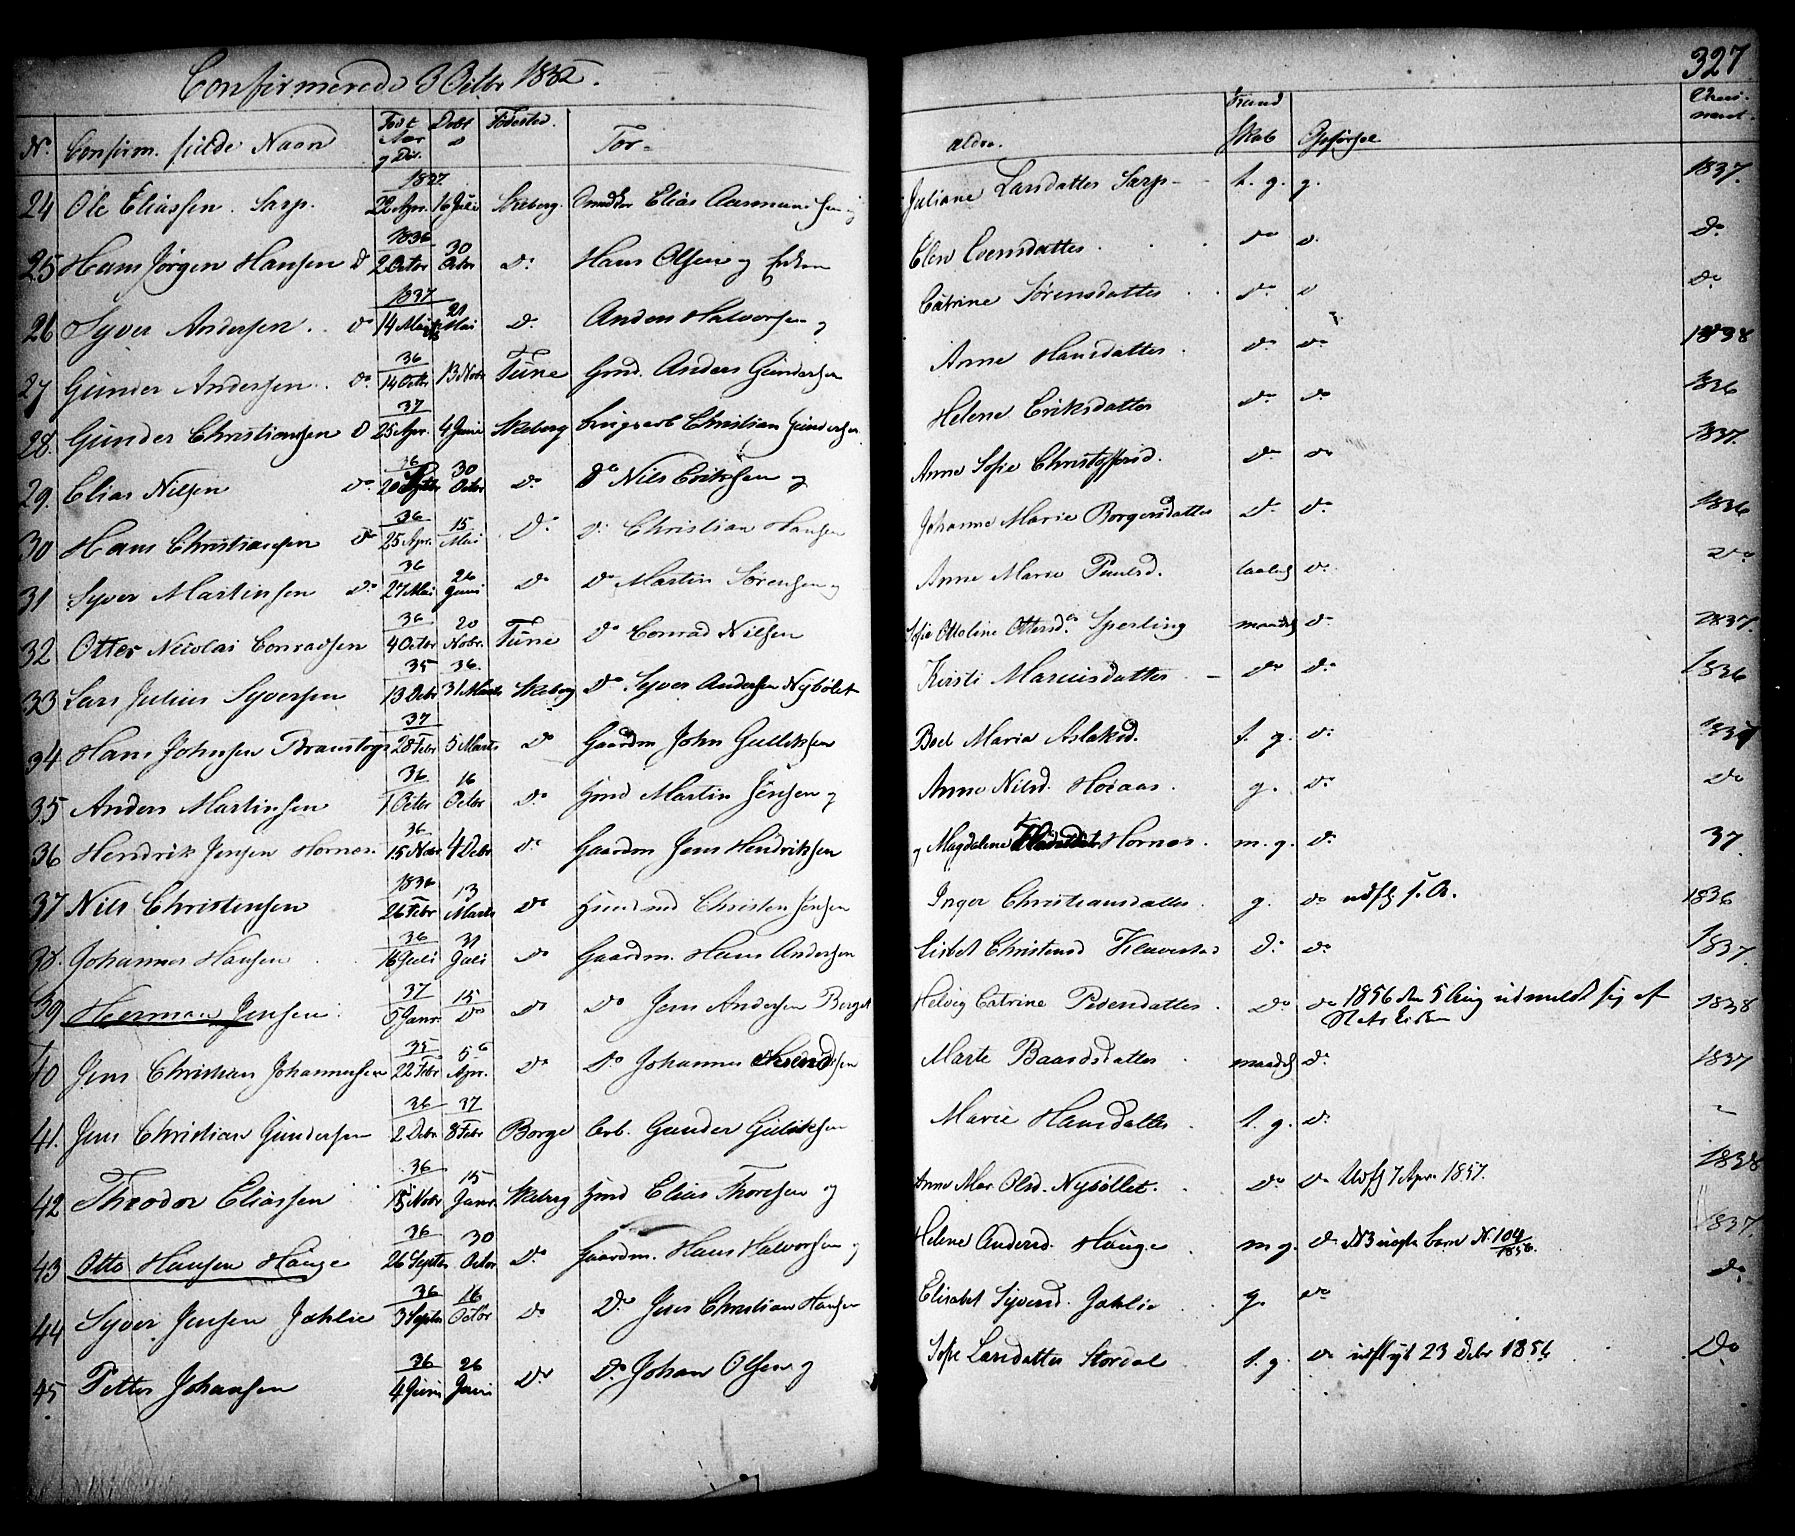 327
Confirmerede 3 Octbr 1852.
No. Confirm. fulde Navn Født Aar og Dat. Døbt Do Fødested. For- ældre. Kund Skab Opførsel Vacci- neret.
24 Ole Eliassen Sarp. 1837 22 Apr. 16 Juli Skeberg. Elias Aasmundsen og Juliane Larsdatter Sarp t. g. g. 1837.
25 Hans Jørgen Hansen Do 1836 2 Octbr 30 Octbr Do Hans Olsen og Elen Evensdatter. Do Do Do
26 Syver Andersen. Do 1837 14 Mai 21 Mai Do Anders Halvorsen og Catrine Sørensdatter Do Do Do
27 Gunder Andersen. Do 36 14 Octbr 13 Novbr Tune Huusmd. Anders Gundersen Anne Hansdatter Do Do 1838
28. Gunder Christiansen Do 37 25 Apr. 4 Juni Skeberg Christian Gundersen Helene Eriksdatter Do Do 1836
29. Elias Nilsen Do 36 20 Septbr 30 Octbr Do Do Nils Eriksen og Anne Sofie Christoffersd. Do Do 1837.
30 Hans Christiansen Do 36 25 Apr. 15 Mai Do Do Christian Hansen Johanne Marie Borgersdatter Do Do 1836
31 Syver Martinsen Do 36 27 Mai 26 Juni Do Do Martin Sørensen og Anne Marie Paulsd. Do Do
32 Otter Nicolai Conradsen 36 4 Octbr 20 Novbr. Tune Do Conrad Nilsen Sofie Ottoline Ottersd. Sperling maadelig Do 1837.
33 Lars Julius Syversen 35 13 Debr 36. 31 Marts Skeberg Do Syver Andersen Nybølet Kirsti Mariusdatter Do Do 1836
34 Hans Johnsen 37 28 Febr 5 Marts Do Gaardm John Gulliksen Boel Maria Aslaksd. t. g. Do 1837
35 Anders Martinsen 36 1 Octbr 16 Octbr Do Huusmd Martin Jensen og Anne Nilsd. Høiaas. g. Do Do
36 Hendrik Jensen Hornes. 36 15 Novbr 4 Debr Do Gaardm Jens Hendriksen og Magdalene Hornes. m. g. Do 37.
37 Nils Christensen 1836 26 Febr 13 Marts Do Huusmd Christen Jensen Inger Christiansdatter g. Do 1836
38. Johannes Hansen 36 16 Juli 31 Juli Do Gaardm. Hans Andersen Lisbet Christensd Klavestad Do Do 1837.
39 Herman Jensen. 37 5 Janr. 15 Do Do Do Jens Andersen Berget Helvig Catrine Pedersdatter. Do Do 1856 den 5 Aug udmeldt sig af Statskirken 1838
40 Jens Christian Johannesen 35 22 Febr 5 Apr. Do Do Johannes Marte Baardsdatter maadelig Do 1837
41. Jens Christian Gundersen 36 2 Debr 37 8 Febr Borge Arb. Gunder Gulliksen Marie Hansdatter. t. g. Do
42 Theodor Eliassen 36 15 Novbr 15 Janr. Skeberg Huusmd Elias Thoresen og Anne Mar. Olsd. Nybøllet. Do Do Udfl 7 Apr. 1857. 1838
43. Otto Hansen Hauge 36 26 Septbr 30 Octbr Do Gaardm. Hans Halvorsen og Helene Andersd. Hauge m g. Do NB uægte barn N. 104/1856. 1837.
44 Syver Jensen Jahlie 36 3 Septbr 16 Octbr Do Do Jens Christian Hansen Elisabet Syversd. Jahlie g. Do Do
45 Petter Johansen 36 4 Juni 26 Juni Do Do Johan Olsen og Sofie Larsdatter Stordal t. g. Do udflyt 23 Debr 1856 Do